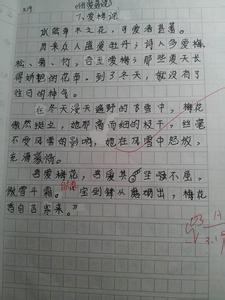 (仿爱莲说)
7.爱梅说
世间草木之花,可爱者甚蕃。
自来众人盛爱牡丹;诗人多爱梅、
松、菊、竹,吾独爱梅,那些夏天长
得娇艳的花草,到了冬天,就没有了
往日的神气。
在冬天漫天遍野的飞雪中,梅花
傲然挺立,她那高而细的枝干,丝毫
不受风雪的影响,她在风雪中怒放,
充满豪情。
吾爱梅花,吾爱其坚强不屈,
傲雪斗霜。宝剑锋从磨砺出,梅花
香自苦寒来。”